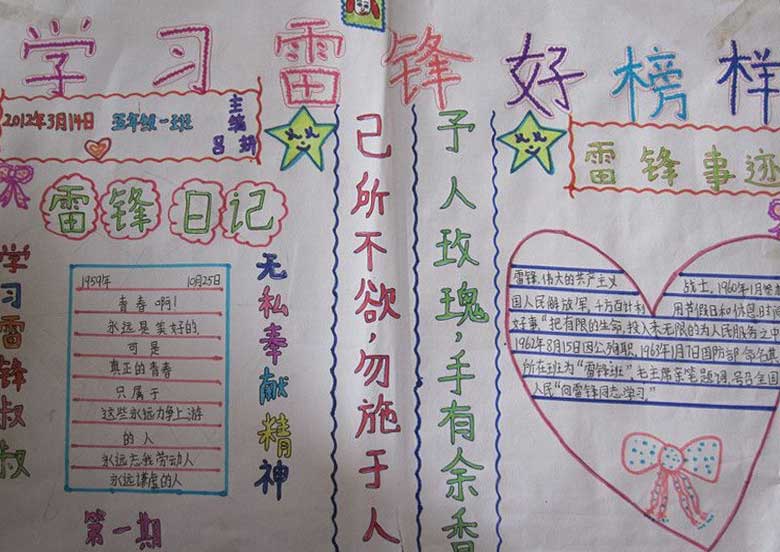 学习雷锋好榜样
2012年3月14日 五年级一班
主编
吕
雷锋日记
学习雷锋叔叔
1959年 10月25日
青春啊!
永远是美好的,
可是
真正的青春
只属于
这些永远力争上游
的人
永远忘我劳动人
永远谦虚的人
第一期
无私奉献精神
己所不欲,勿施于人
予人玫瑰,手有余香
雷锋事迹
雷锋,伟大的共产主义 战士,1960年1月
国人民解放军,千方百计利 用节假日和休息时间
好事“把有限的生命,投入未无限的为人民服务之中
1962年8月15日因公殉职,1963年1月7日国防部命名
所在班为“雷锋班”,毛主席亲笔题词,号召全国
人民“向雷锋同志学习”